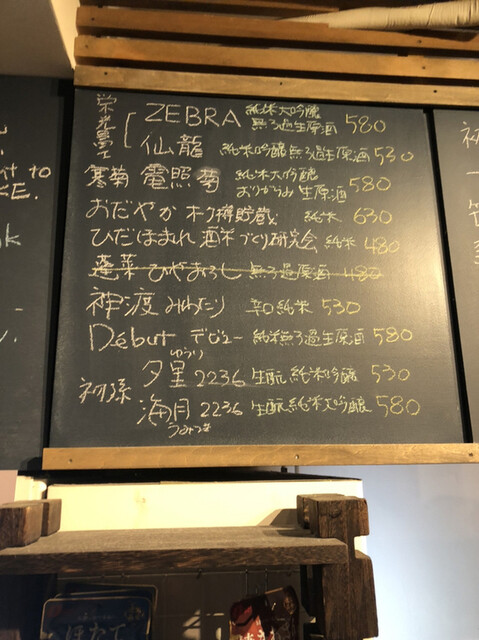 栄光冨士 ZEBRA 純米大吟醸 無ろ過生原酒 580
仙龍 純米吟醸 無ろ過生原酒 530
寒菊 電照菊 純米大吟醸 おりがらみ 生原酒 580
おだやか 木樽貯蔵 純米 630
ひだほまれ 酒米づくり研究会 純米 480
蓬莱 ひやおろし 無ろ過原酒 480
神渡 みわたり 辛口純米 530
Début デビュー 純米無ろ過生原酒 580
ゆうり
初孫 夕里 2236 生酛 純米吟醸 530
海月 2236 生酛 純米大吟醸 580
うみつき
ほたて